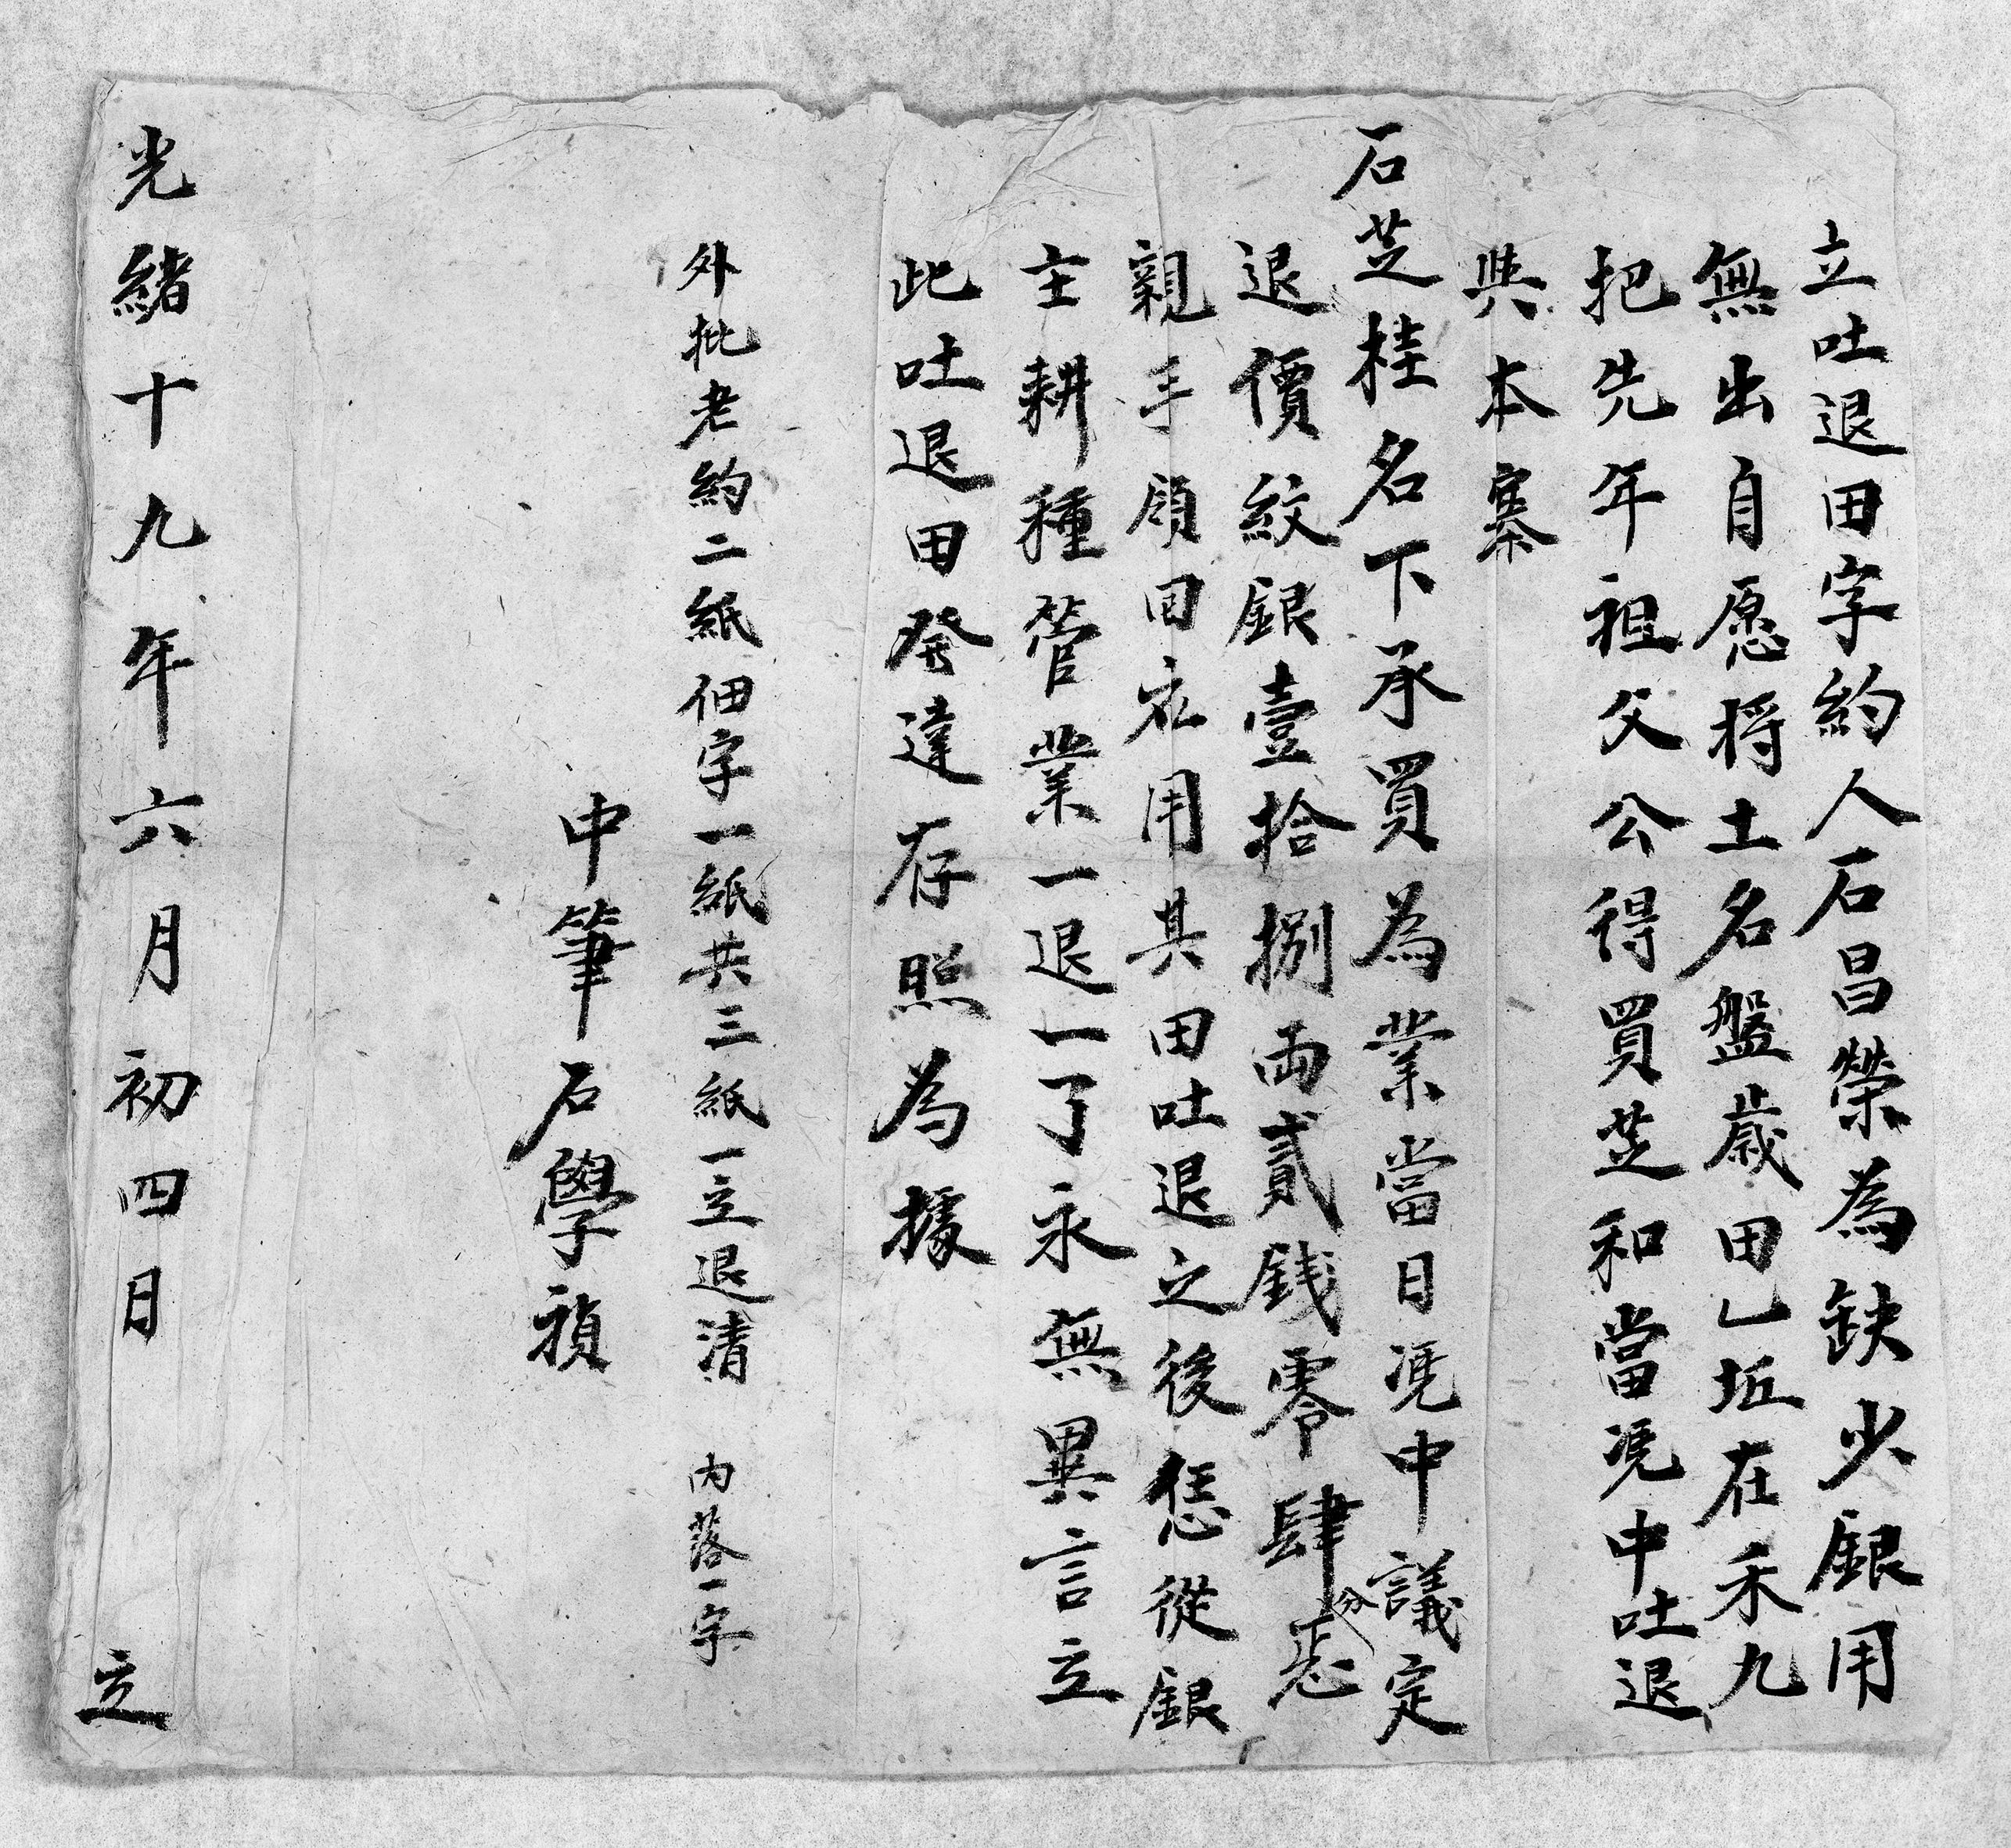 立吐退田字約人石昌榮為缺少銀用
無出自愿将土名盤歲田乚坵在禾九
把先年祖父公得買芝和當凭中吐退
與本寨
石芝桂名下承買為業當日凭中議定
退價紋銀壹拾捌両貳銭零肆分恁
親手領回衣用其田吐退之後恁從銀
主耕種管業一退一了永無異言立
此吐退田發達存照為據
外批老約二紙佃字一紙共三紙一立退清 内落一字
中筆石學禎
光緒十九年六月初四日 立